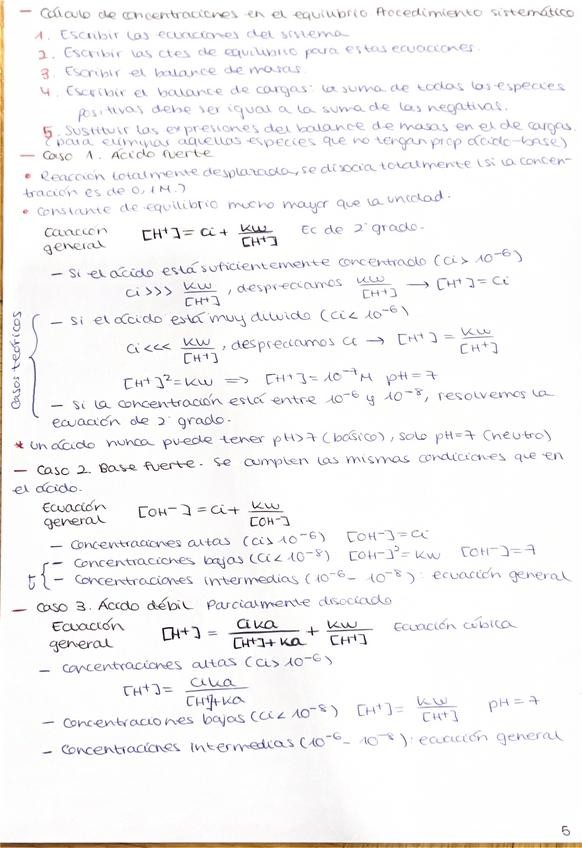 — Cálculo de concentraciones en el equilibrio Procedimiento sistemático
1. Escribir las ecuaciones del sistema
2. Escribir las ctes de equilibrio para estas ecuaciones.
3. Escribir el balance de masas
4. Escribir el balance de cargas: la suma de todas las especies
positivas debe ser igual a la suma de las negativas.
5. Sustituir las expresiones del balance de masas en el de cargas
(para eliminar aquellas especies que no tengan prop ácido-base)
— Caso 1. Ácido fuerte
• Reacción totalmente desplazada, se disocia totalmente (si la concen-
tración es de 0,1M.)
• Constante de equilibrio mucho mayor que la unidad.
Ecuación general [H+] = Ci + Kw/[H+] Ec de 2º grado.
— Si el ácido está suficientemente concentrado (Ci > 10^-6)
Ci >>> Kw/[H+], despreciamos Kw/[H+] → [H+] = Ci
Casos teóricos
— Si el ácido está muy diluido (Ci < 10^-6)
Ci <<< Kw/[H+], despreciamos Ci → [H+] = Kw/[H+]
[H+]² = Kw => [H+] = 10^-7 M pH = 7
— Si la concentración está entre 10^-6 y 10^-8, resolvemos la
ecuación de 2º grado.
* Un ácido nunca puede tener pH>7 (básico), solo pH=7 (neutro)
— Caso 2. Base fuerte. Se cumplen las mismas condiciones que en
el ácido.
Ecuación general [OH-] = Ci + Kw/[OH-]
— Concentraciones altas (Ci > 10^-6) [OH-] = Ci
— Concentraciones bajas (Ci < 10^-8) [OH-]² = Kw [OH-] = 7
— Concentraciones intermedias (10^-6 - 10^-8): ecuación general
— Caso 3. Ácido débil Parcialmente disociado
Ecuación general [H+] = CiKa/([H+]+Ka) + Kw/[H+] Ecuación cúbica
— Concentraciones altas (Ci > 10^-6)
[H+] = CiKa/([H+]+Ka)
— Concentraciones bajas (Ci < 10^-8) [H+] = Kw/[H+] pH = 7
— Concentraciones intermedias (10^-6 - 10^-8): ecuación general
5